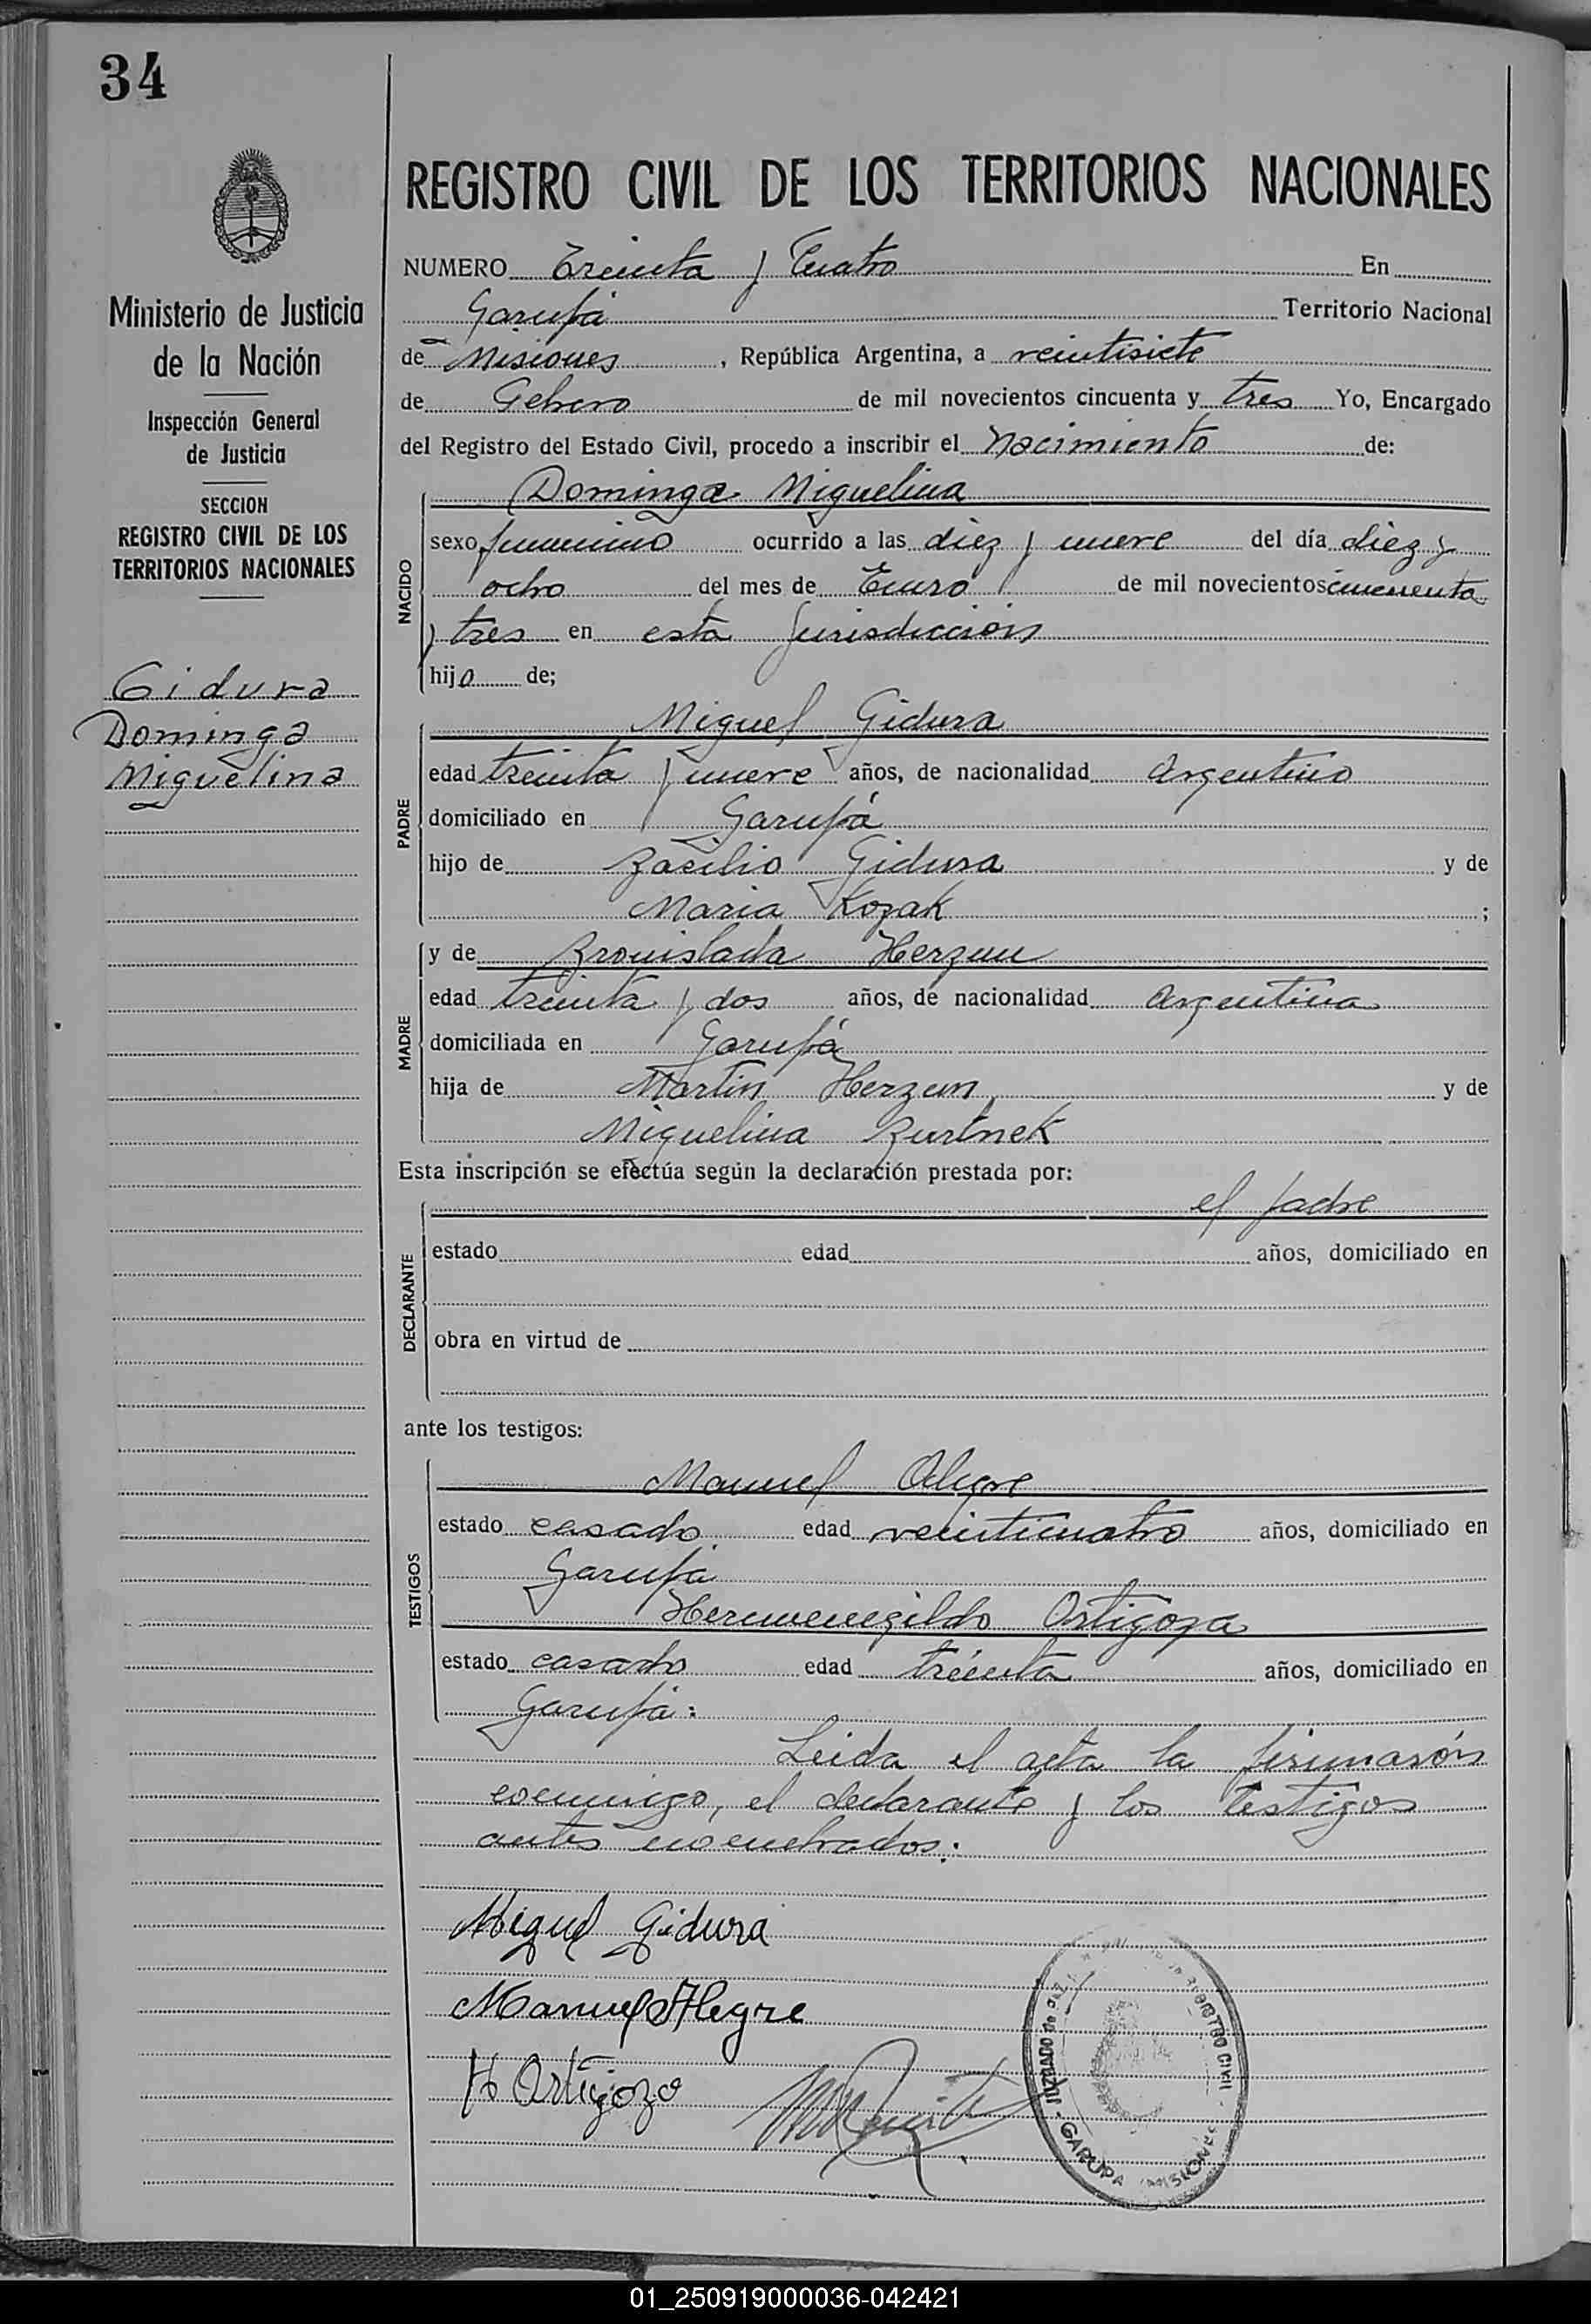 34
REGISTRO CIVIL DE LOS TERRITORIOS NACIONALES
Ministerio de Justicia
de la Nación
Inspección General
de Justicia
SECCION
REGISTRO CIVIL DE LOS
TERRITORIOS NACIONALES
Gidura
Dominga
Miguelina
NUMERO Treinta y Cuatro En
Garupá Territorio Nacional
de Misiones, República Argentina, a veintisiete
de Febrero de mil novecientos cincuenta y tres Yo, Encargado
del Registro del Estado Civil, procedo a inscribir el Nacimiento de:
NACIDO
Dominga Miguelina
sexo femenino ocurrido a las diez y nueve del día diez y
ocho del mes de Enero de mil novecientos cincuenta
y tres en esta Jurisdicción
hija de;
PADRE
Miguel Gidura
edad treinta y nueve años, de nacionalidad Argentino
domiciliado en Garupá
hijo de Bacilio Gidura y de
Maria Kozak ;
MADRE
y de Bronislada Herzun
edad treinta y dos años, de nacionalidad Argentina
domiciliada en Garupá
hija de Martin Herzun y de
Miguelina Burtnek
Esta inscripción se efectúa según la declaración prestada por:
DECLARANTE
el padre
estado edad años, domiciliado en
obra en virtud de
ante los testigos:
TESTIGOS
Manuel Alegre
estado casado edad veinticuatro años, domiciliado en
Garupá
Hermenegildo Ortigoza
estado casado edad treinta años, domiciliado en
Garupá:
Leida el acta la firmarón
conmigo, el declarante y los testigos
antes nomenbrados:
Miguel Gidura
Manuel Alegre
H Ortigozo
JUZGADO DE PAZ REGISTRO CIVIL
GARUPA MISIONES
01_250919000036-042421